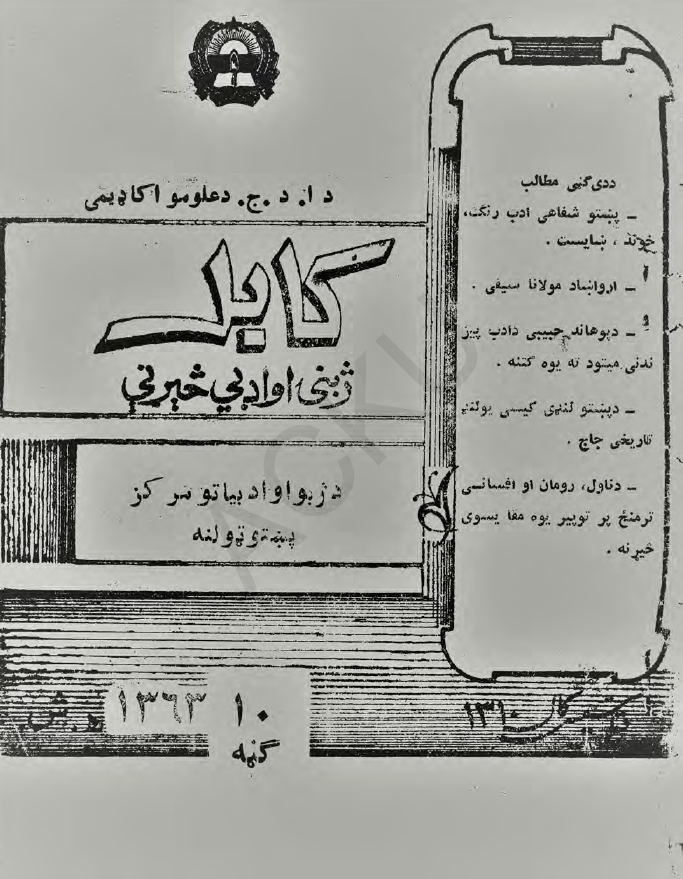 د ا. د. ج. دعلومو اکاډیمی
کابل
ژبنی او ادبي څیړنې
د ژبو او ادبیاتو مرکز
پښتو ټولنه
ددی ګڼی مطالب
ـ پښتو شفاهی ادب رنګ،
خوند ، ښایست .
ـ ارواښاد مولانا سیفی .
ـ دپوهاند حبیبی دادب پیژ
ندنی میتود ته یوه کتنه .
ـ دپښتو لنډی کیسی یولنډ
تاریخی جاج .
ـ دناول، رومان او افسانی
ترمنځ پر توپیر یوه مقا یسوی
څیړنه .
۱۳۶۳ ه.ش
۱۰
ګڼه
کال ۱۳۱۰
ACKU